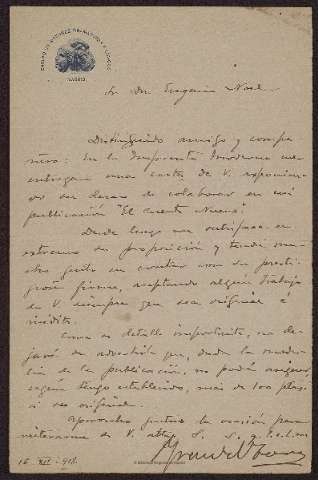 MADRID
Sr. Don Eugenio Noel
Distinguido amigo y compa-
ñero: En la Imprenta Moderna me
entregan una carta de V. exponien-
do su deseo de colaborar en mi
publicación "El Cuento Nuevo".
Desde luego me satisface en
extremo su proposición y tendré mu-
cho gusto en contar con su presti-
giosa firma, aceptando algún trabajo
de V. siempre que sea original é
inédito.
Como es detalle importante, no de-
jaré de advertirle que, dada la modes-
tia de la publicación, no podré asignar,
según tengo establecido, más de 100 ptas.
á su original.
Aprovecho gustoso la ocasión para
reiterarme de V. atto. S. S. q. l. e. l. m.
16 - XII - 918.